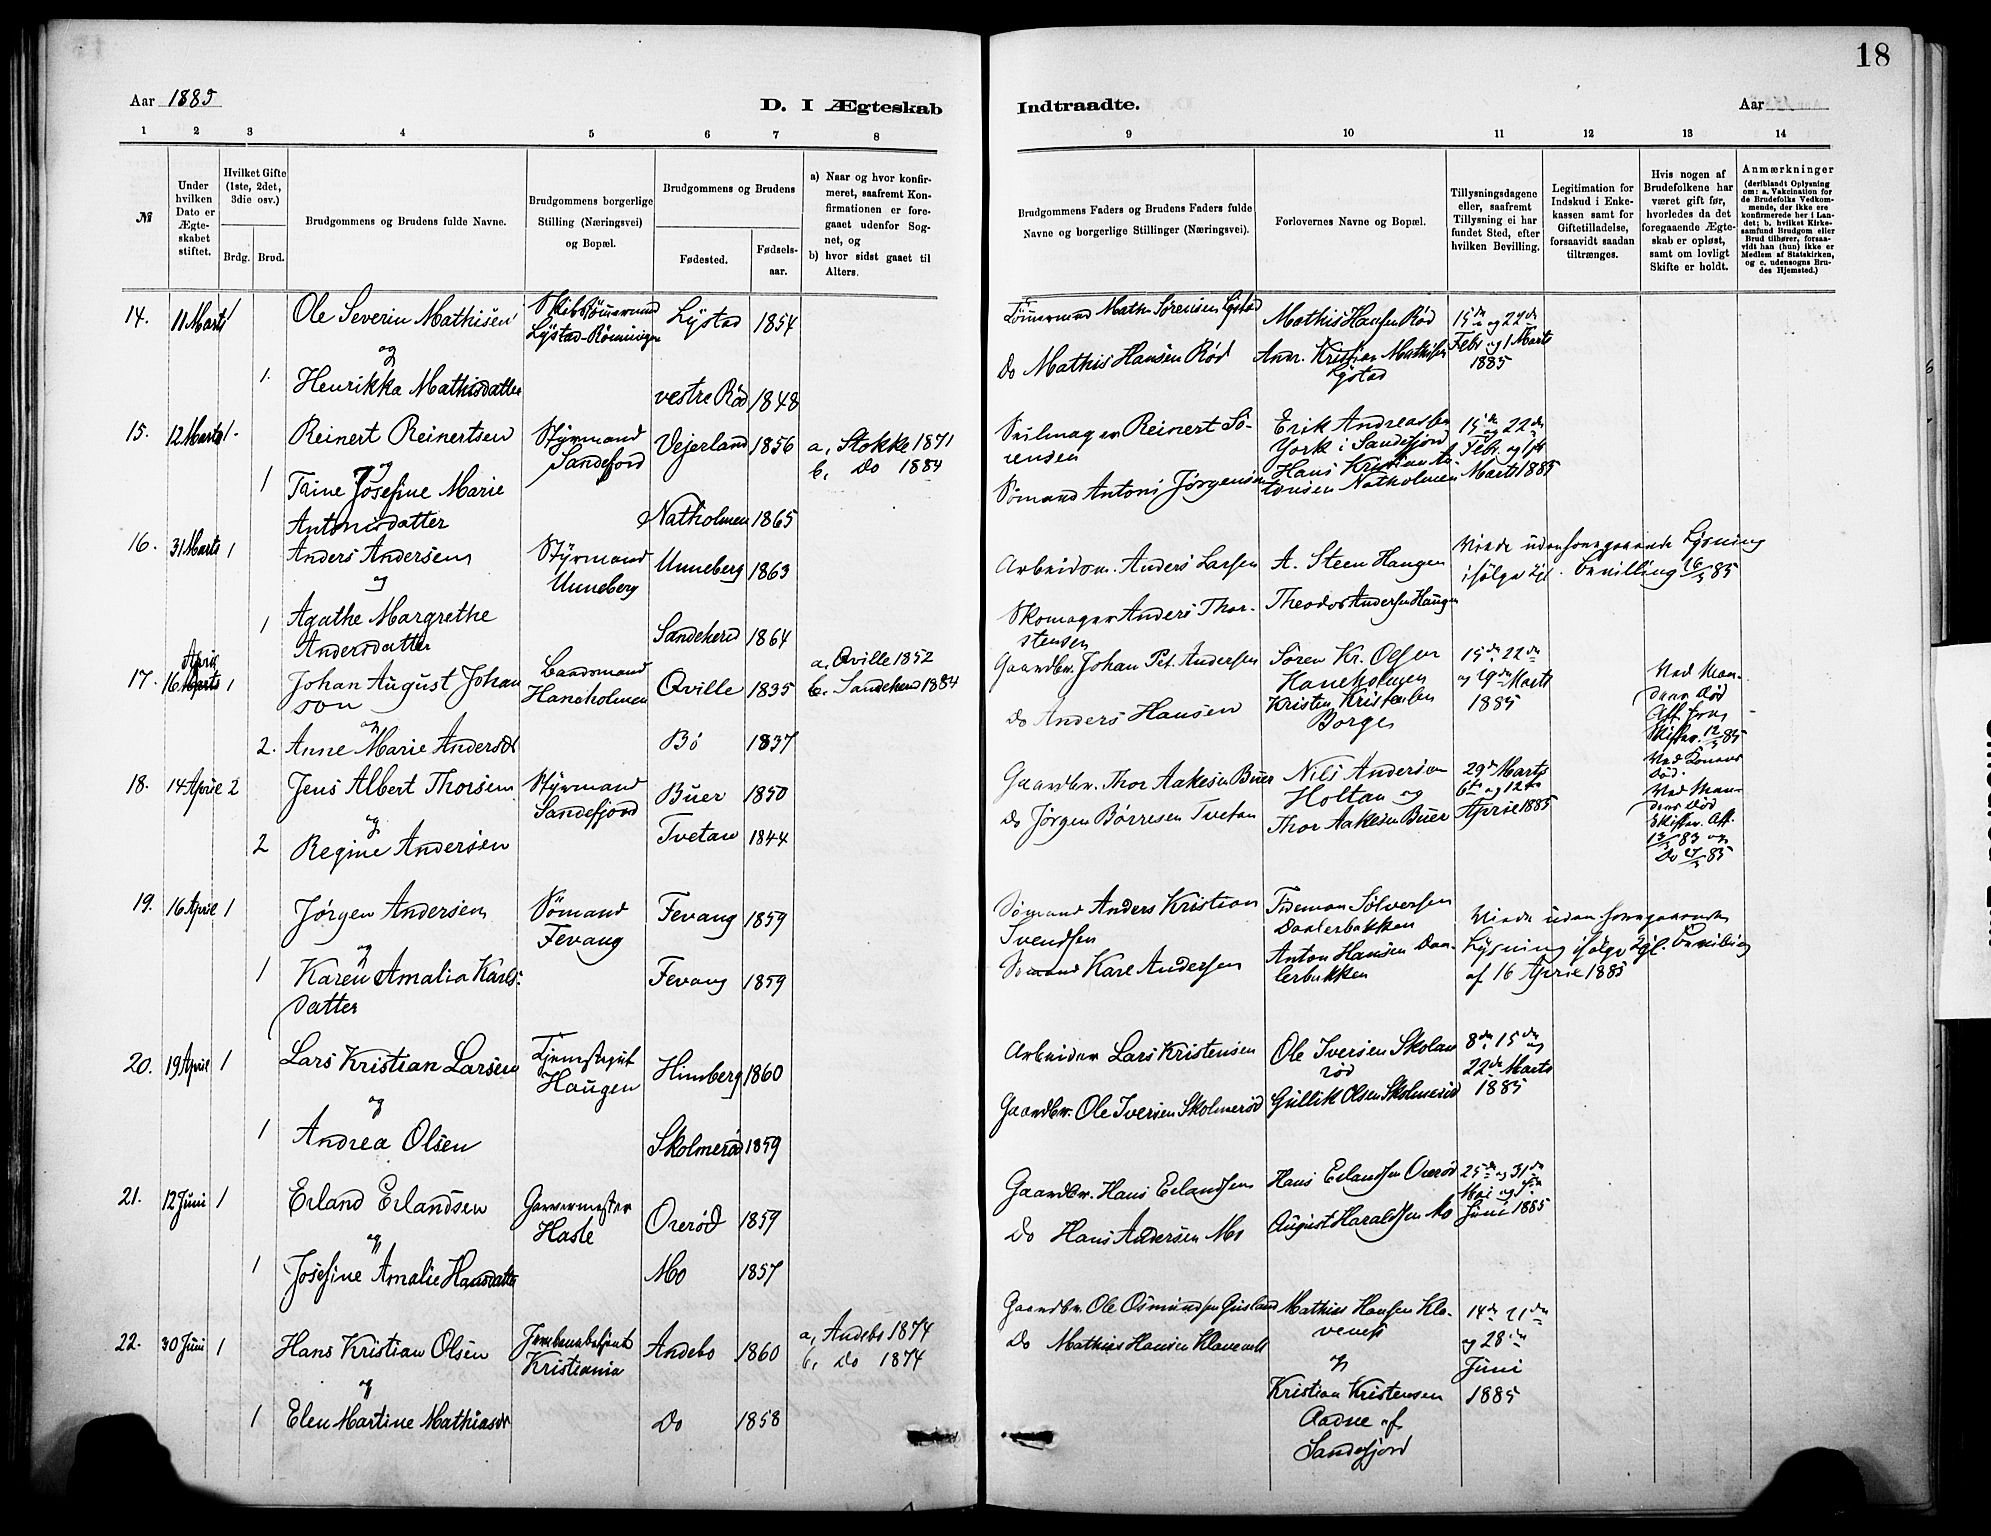 18
Aar 1885
D. I Ægteskab
Indtraadte.
Aar
1 2 3 4 5 6 7 8
9 10 11 12 13 14
№
Under hvilken Dato er Ægteskabet stiftet.
Hvilket Gifte (1ste, 2det, 3die osv.)
Brdg. Brud.
Brudgommens og Brudens fulde Navne.
Brudgommens borgerlige Stilling (Næringsvei) og Bopæl.
Brudgommens og Brudens
Fødested.
Fødselsaar.
a) Naar og hvor konfirmeret, saafremt Konfirmationen er foregaaet udenfor Sognet, og
b) hvor sidst gaaet til Alters.
Brudgommens Faders og Brudens Faders fulde Navne og borgerlige Stillinger (Næringsvei).
Forlovernes Navne og Bopæl.
Tillysningsdagene eller, saafremt Tillysning ei har fundet Sted, efter hvilken Bevilling.
Legitimation for Indskud i Enkekassen samt for Giftetilladelse, forsaavidt saadan tiltrænges.
Hvis nogen af Brudefolkene har været gift før, hvorledes da det foregaaende Ægteskab er opløst, samt om lovligt Skifte er holdt.
Anmærkninger
(deriblandt Oplysning om: a. Vakcination for de Brudefolks Vedkommende, der ikke ere konfirmerede her i Landet; b. hvilket Kirkesamfund Brudgom eller Brud tilhører, forsaavidt han (hun) ikke er Medlem af Statskirken, og c. udensogns Brudes Hjemsted.)
14. 11 Marts 1 Ole Severin Mathisen Lystad-Rønningen Lystad 1854
og
1. Henrikka Mathisdatter vestre Rød 1848
Math. Sørensen Lystad
Do Mathis Hansen Rød
Mathis Hansen Rød
Andr. Kristian Mathisen Lystad
15de og 22de Febr og 1 Marts 1885
15. 12 Marts 1. Reinert Reinertsen Styrmand Sandefjord Vejerland 1856 a, Stokke 1871
b, Do 1884
og
1 Trine Josefine Marie Antonisdatter Natholmen 1865
Seilmager Reinert Sørensen
Sømand Antoni Jörgensen
Erik Andreassen York i Sandefjord
Hans Kristian Antonsen Natholmen
15de og 22de Febr. og 1ste Marts 1885
16. 31 Marts 1 Anders Andersen Styrmand Unneberg Unneberg 1863
og
1 Agathe Margrethe Andersdatter Sandeherred 1864
Arbeidsm. Anders Larsen
Skomager Anders Thorstensen
A. Steen Haugen
Theodor Andersen Haugen
Viede uden foregaaende Lysning ifølge kgl. Bevilling 16/3 85
17. 16 April Marts 1 Johan August Johanson Landsmand Haneholmen Qville 1835 a, Qville 1852
b. Sandeherd 1884
og
2. Anne Marie Andersdt Bø 1837
Gaardbr. Johan Pet. Andersen
Do Anders Hansen
Søren Kr. Olsen Haneholmen
Kristen Kristensen Borge
15de 22de og 29de Marts 1885
Ved Mandens Død
Att. fra Skifter. 12/3 85
18. 14 April 2 Jens Albert Thorsen Styrmand Sandefjord Buer 1850
og
2 Regine Andersen Tvetan 1844
Gaardbr. Thor Aakesen Buer
Do Jørgen Børresen Tvetan
Nils Andersen Holtan og
Thor Aakesen Buer
29de Marts 6te og 12te April 1885
Ved Konens Død.
Ved Mandens Død
Skifter. Att. 13/3 83 og Do 27/3 85
19. 16 April 1 Jørgen Andersen Sømand Fevang Fevang 1859
og
1 Karen Amalia Karlsdatter Fevang 1859
Sømand Anders Kristian Svendsen
Sømand Karl Andersen
Tideman Sølversen Daalerbakken
Anton Hansen Daalerbakken
Viede uden foregaaende Lysning ifølge kgl. Bevilling af 16 April 1885
20. 19 April 1 Lars Kristian Larsen Tjenstegut Haugen Himberg 1860
og
1 Andrea Olsen Skolmerød 1859
Arbeider Lars Kristensen
Gaardbr. Ole Iversen Skolmerød
Ole Iversen Skolmerød
Gullik Olsen Skolmerød
8de, 15de og 22de Marts 1885
21. 12 Juni 1 Erland Erlandsen Garvermester Hasle Orerød 1859
og
1 Josefine Amalie Hansdatter Mo 1857
Gaardbr. Hans Erlandsen
Do Hans Andersen Mo
Hans Erlandsen Orerød
August Haraldsen Mo
25de og 31de Mai og Juni 1885
22. 30 Juni 1 Hans Kristian Olsen Jernbanebetjent Kristiania Andebo 1860 a, Andebo 1874
b, Do 1874
og
1 Elen Martine Mathiasdr Do 1858
Gaardbr. Ole Osmundsen
Do Mathias Hansen Klavenes
Mathias Hansen Klavenes
og
Kristian Kristensen Aadne af Sandefjord
14de 21de og 28de Juni 1885